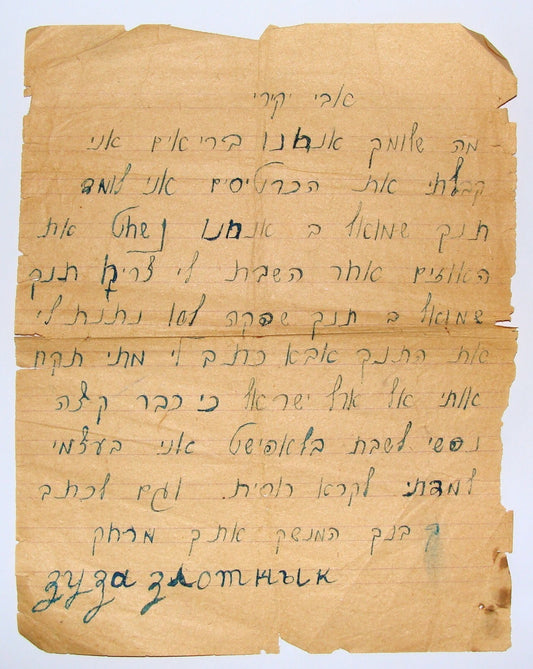 אבי יקירי
מה שלומך אנחנו בריאים אני
קבלתי את הכרטיסים אני לומד
תנך שמואל ב אנחנו נשחט את
האוזים אחר השבת לי צריך תנך
שמואל ב תנך שפקה לסו נתנת לי
את התנך אבא כתב לי מתי תקח
אותי אל ארץ ישראל כי כבר קצה
נפשי לשבת בלאפישט אני בעצמי
למדתי לקרא רוסית. וגם לכתב
בנך המנשק אתך מרחק
зуза злотнык